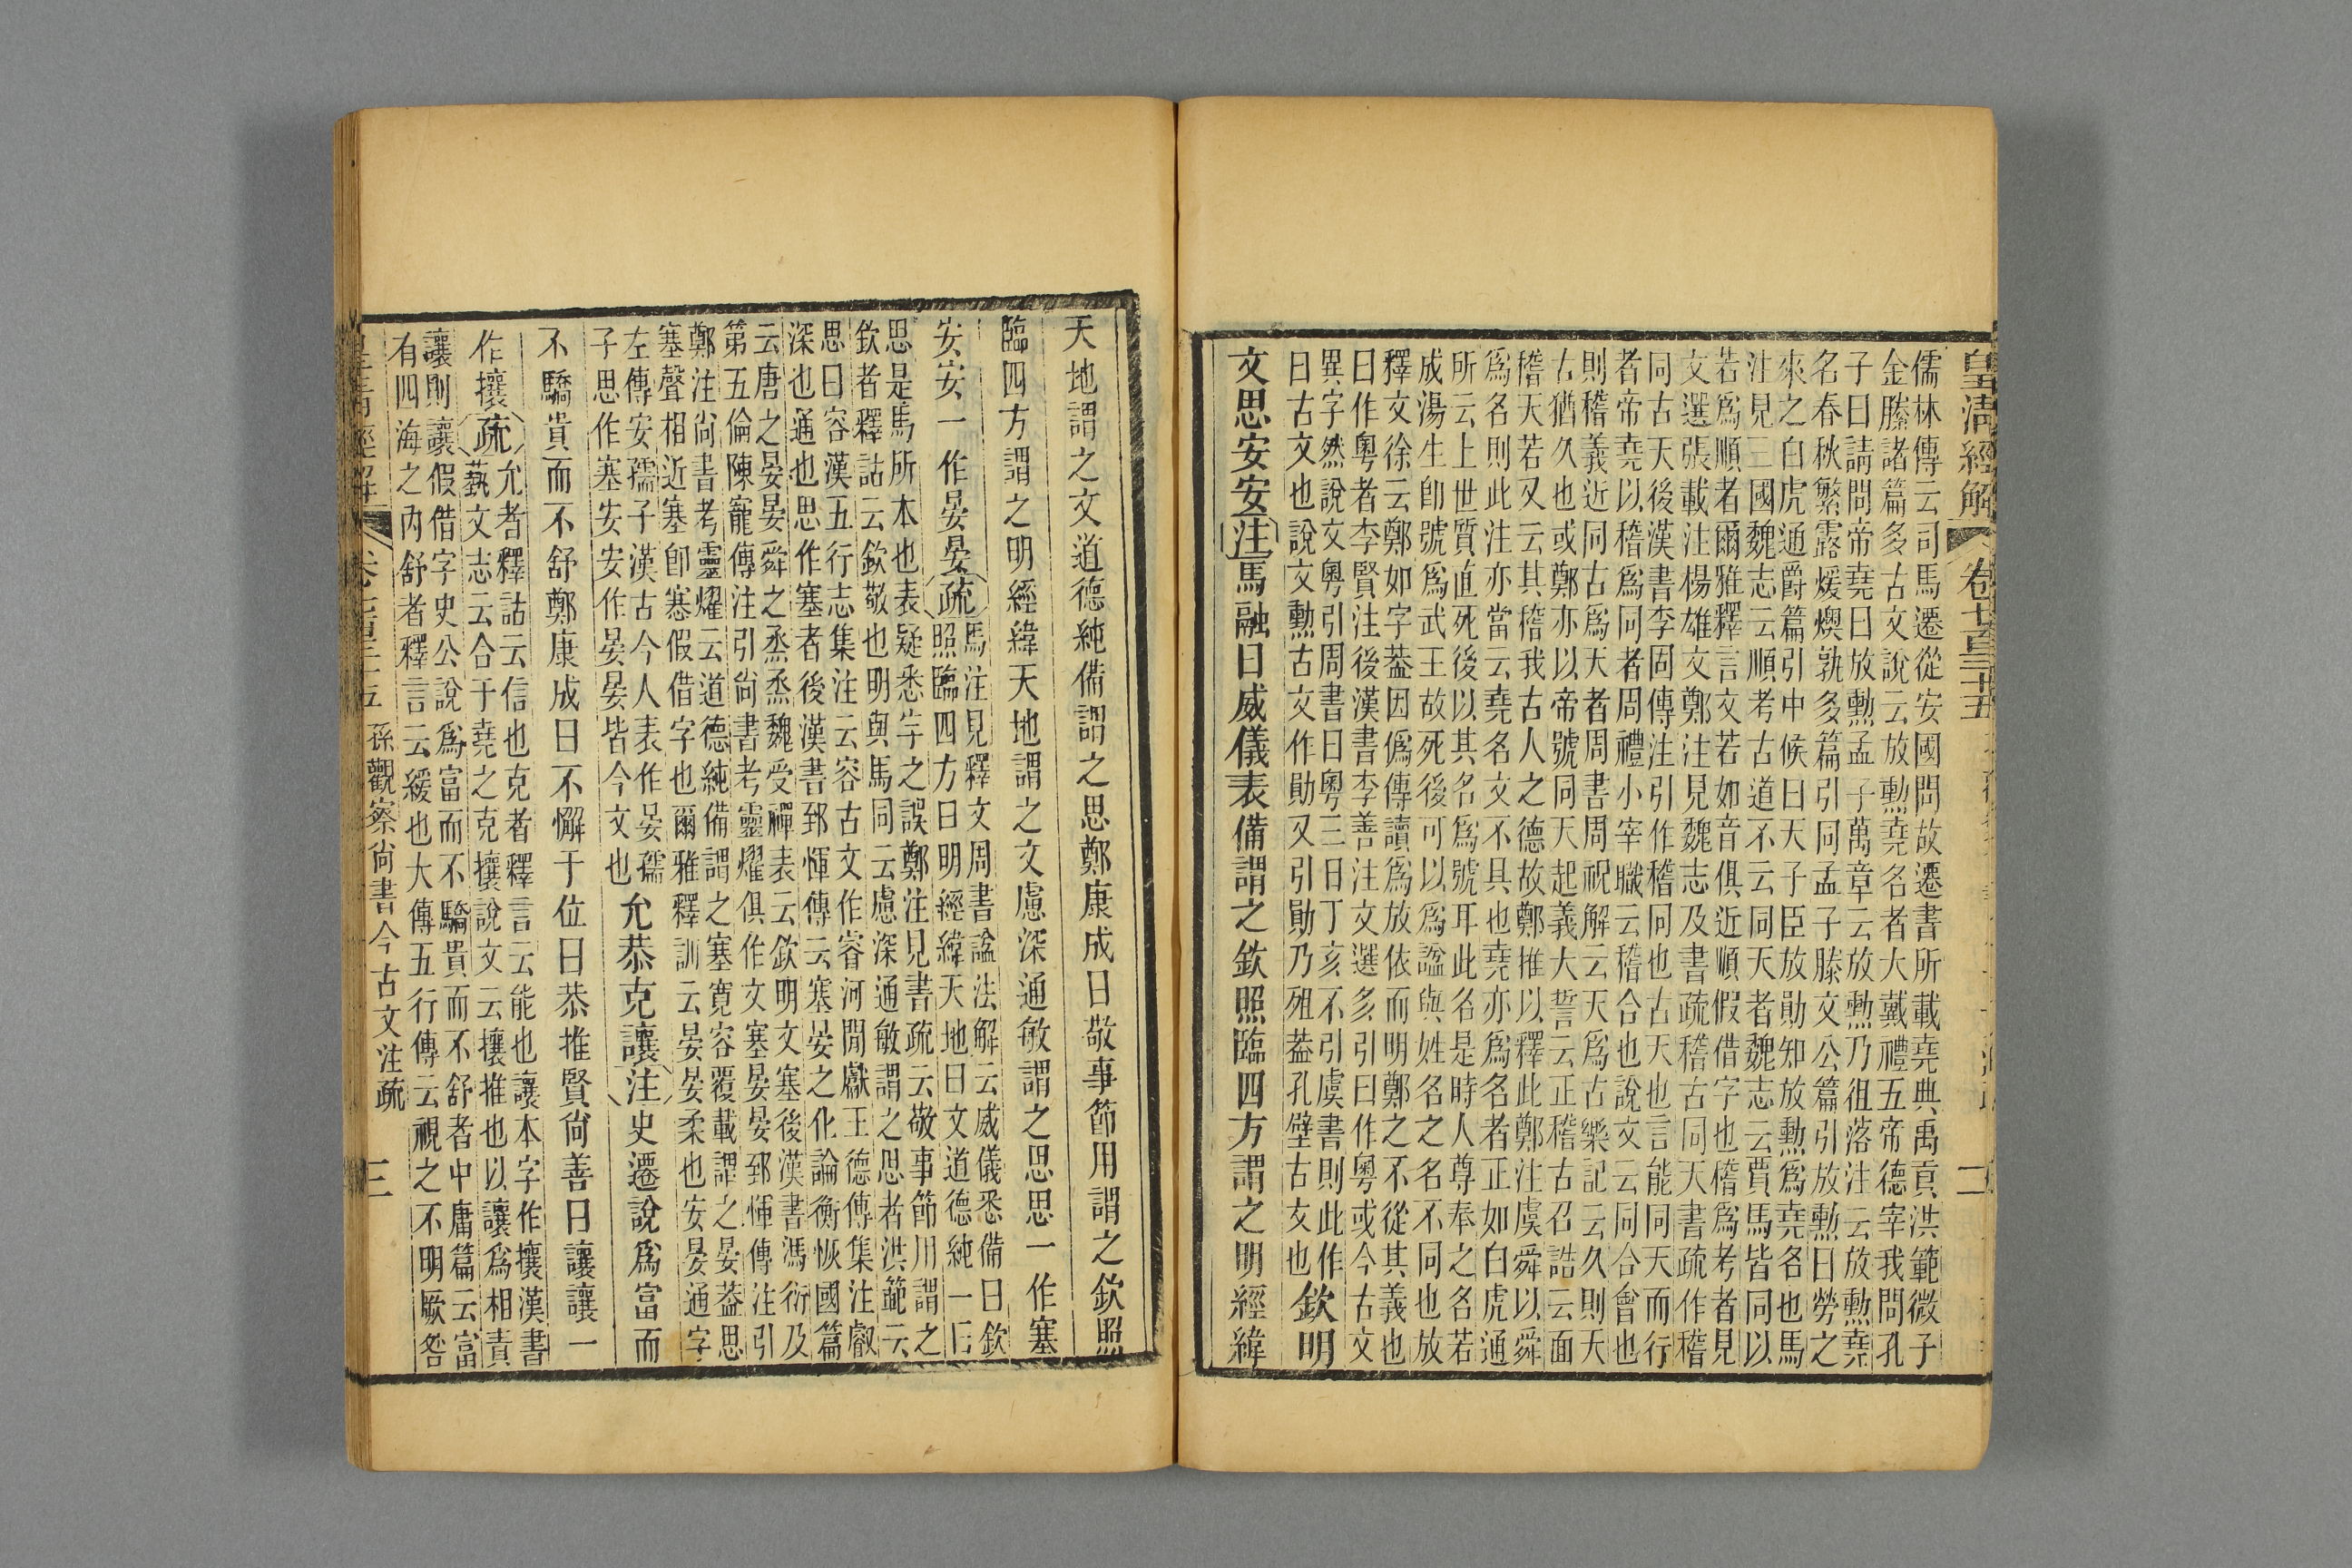 皇清經解 卷七百三十五 二
儒林傳云司馬遷從安國問故遷書所載堯典禹貢洪範微子
金縢諸篇多古文說云放勳堯名者大戴禮五帝德宰我問孔
子曰請問帝堯曰放勳孟子萬章云放勳乃徂落注云放勳堯
名春秋繁露煖燠孰多篇引同孟子滕文公篇引放勳曰勞之
來之白虎通爵篇引中候曰天子臣放勛知放勳爲堯名也馬
注見三國魏志云順考古道不云同天者魏志云賈馬皆同以
若爲順者爾雅釋言文若如音俱近順假借字也稽爲考者見
文選張載注楊雄文鄭注見魏志及書疏稽古同天書疏作稽
同古天後漢書李固傳注引作稽同也古天也言能同天而行
者帝堯以稽爲同者周禮小宰職云稽合也說文云同合會也
則稽義近同古爲天者周書周祝解云天爲古樂記云久則天
古猶久也或鄭亦以帝號同天起義大誓云正稽古召誥云面
稽天若又云其稽我古人之德故鄭推以釋此鄭注虞舜以舜
爲名則此注亦當云堯名文不具也堯亦爲名者正如白虎通
所云上世質直死後以其名爲號耳此名是時人尊奉之名若
成湯生卽號爲武王故死後可以爲諡與姓名之名不同也放
釋文徐云鄭如字葢因僞傳讀爲放依而明鄭之不從其義也
曰作粵者李賢注後漢書李善注文選多引曰作粵或今古文
異字然說文粵引周書曰粵三日丁亥不引虞書則此作
曰古文也說文勳古文作勛又引勛乃殂葢孔壁古文也 欽明
文思安安注馬融曰威儀表備謂之欽照臨四方謂之明經緯
天地謂之文道德純備謂之思鄭康成曰敬事節用謂之欽照
臨四方謂之明經緯天地謂之文慮深通敏謂之思思一作塞
安安一作晏晏疏
馬注見釋文周書諡法解云威儀悉備曰欽
照臨四方曰明經緯天地曰文道德純一曰
思是馬所本也表疑悉字之誤鄭注見書疏云敬事節用謂之
欽者釋詁云欽敬也明與馬同云慮深通敏謂之思者洪範云
思曰容漢五行志集注云容古文作睿河閒獻王德傳集注叡
深也通也思作塞者後漢書郅惲傳云塞晏之化論衡恢國篇
云唐之晏晏舜之烝烝魏受禪表云欽明文塞後漢書馮衍及
第五倫陳寵傳注引尙書考靈燿俱作文塞晏晏郅惲傳注引
鄭注尙書考靈燿云道德純備謂之塞寬容覆載謂之晏葢思
塞聲相近塞卽𡫳假借字也爾雅釋訓云晏晏柔也安晏通字
左傳安孺子漢古今人表作晏孺
子思作塞安安作晏晏皆今文也 允恭克讓注史遷說爲富而
不驕貴而不舒鄭康成曰不懈于位曰恭推賢尙善曰讓讓一
作攘疏
允者釋詁云信也克者釋言云能也讓本字作攘漢書
藝文志云合于堯之克攘說文云攘推也以讓爲相責
讓則讓假借字史公說爲富而不驕貴而不舒者中庸篇云富
有四海之內舒者釋言云緩也大傳五行傳云視之不明厥咎
孫觀察尙書今古文注疏 三